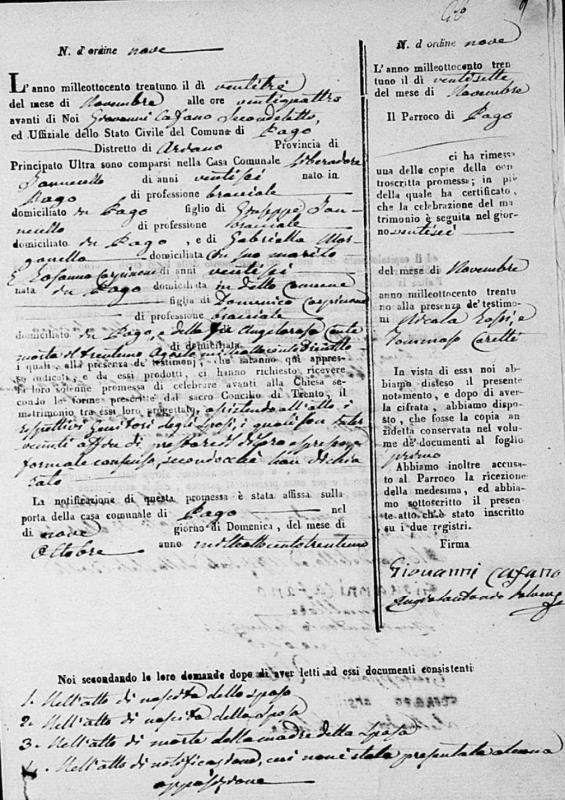 N. d'ordine nove
L'anno milleottocento trentuno il dì ventitrè
del mese di Novembre alle ore ventiquattro
avanti di Noi Giovanni Cafano
ed Uffiziale dello Stato Civile del Comune di Pago
Distretto di Provincia di
Principato Ultra sono comparsi nella Casa Comunale Liberadore
Iannicello di anni ventisei nato in
Pago di professione bracciale
domiciliato in Pago figlio di Giuseppe Ian-
nicello di professione bracciale
domiciliato in Pago, e di Gabriella Mor-
ganella domiciliata in suo marito
E Rosanna di anni ventisei
nata in Pago domiciliata in detto comune
figlia di Domenico
di professione bracciale
domiciliato in Pago, e della fu Angelarosa Conte
morta il trentuno Agosto
di domiciliata
i quali, alla presenza de' testimonj, che saranno quì appres-
so indicati, e da essi prodotti, ci hanno richiesto ricevere
la loro solenne promessa di celebrare avanti alla Chiesa se-
condo le forme prescritte dal sacro Concilio di Trento, il
matrimonio tra essi loro progettato, assistendo all'atto i
rispettivi Genitori degli sposi, i quali son inter-
venuti a
formale consenso, secondocchè han dichia
rato
La notificazione di questa promessa è stata affissa sulla
porta della casa comunale di Pago nel
dì nove giorno di Domenica, del mese di
Ottobre anno milleottocentotrentuno
N. d'ordine nove
L'anno milleottocento tren
tuno il dì ventisette
del mese di Novembre
Il Parroco di Pago
ci ha rimessa
una delle copie della con
troscritta promessa; in piè
della quale ha certificato,
che la celebrazione del ma
trimonio è seguita nel gior-
no ventisei
del mese di Novembre
anno milleottocento trentu
no alla presenza de' testimo-
nj Nicola Rossi, e
Tommaso Carelli
In vista di essi noi ab-
biamo disteso il presente
notamento, e dopo di aver-
la cifrata, abbiamo dispo-
sto, che fosse la copia an
zidetta conservata nel volu-
me de' documenti al foglio
primo
Abbiamo inoltre accusa-
to al Parroco la ricezione
della medesima, ed abbia-
mo sottoscritto il presen-
te atto ch'è stato inscritto
su i due registri.
Firma
Giovanni Cafano
Noi secondando le loro domande dopo di aver letti ad essi documenti consistenti
1. Nell'atto di nascita dello sposo
2. Nell'atto di nascita della sposa
3. Nell'atto di morte della madre della sposa
4. Nell'atto di notificazione, cui non è stata presentata alcuna
opposizione